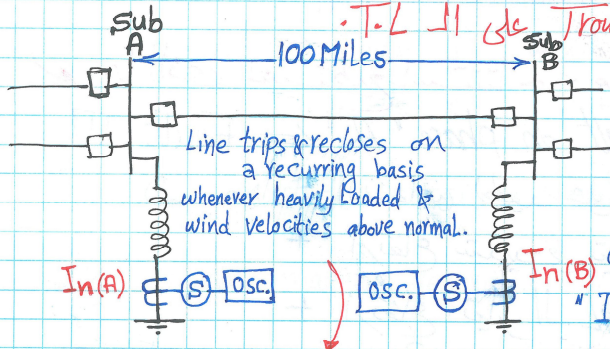 . T.L ال على Trou
Sub
A
100 Miles
Sub
B
Line trips & recloses on
a recurring basis
whenever heavily Loaded &
wind velocities above normal.
In (A)
S
OSC.
OSC.
S
In (B)
" I